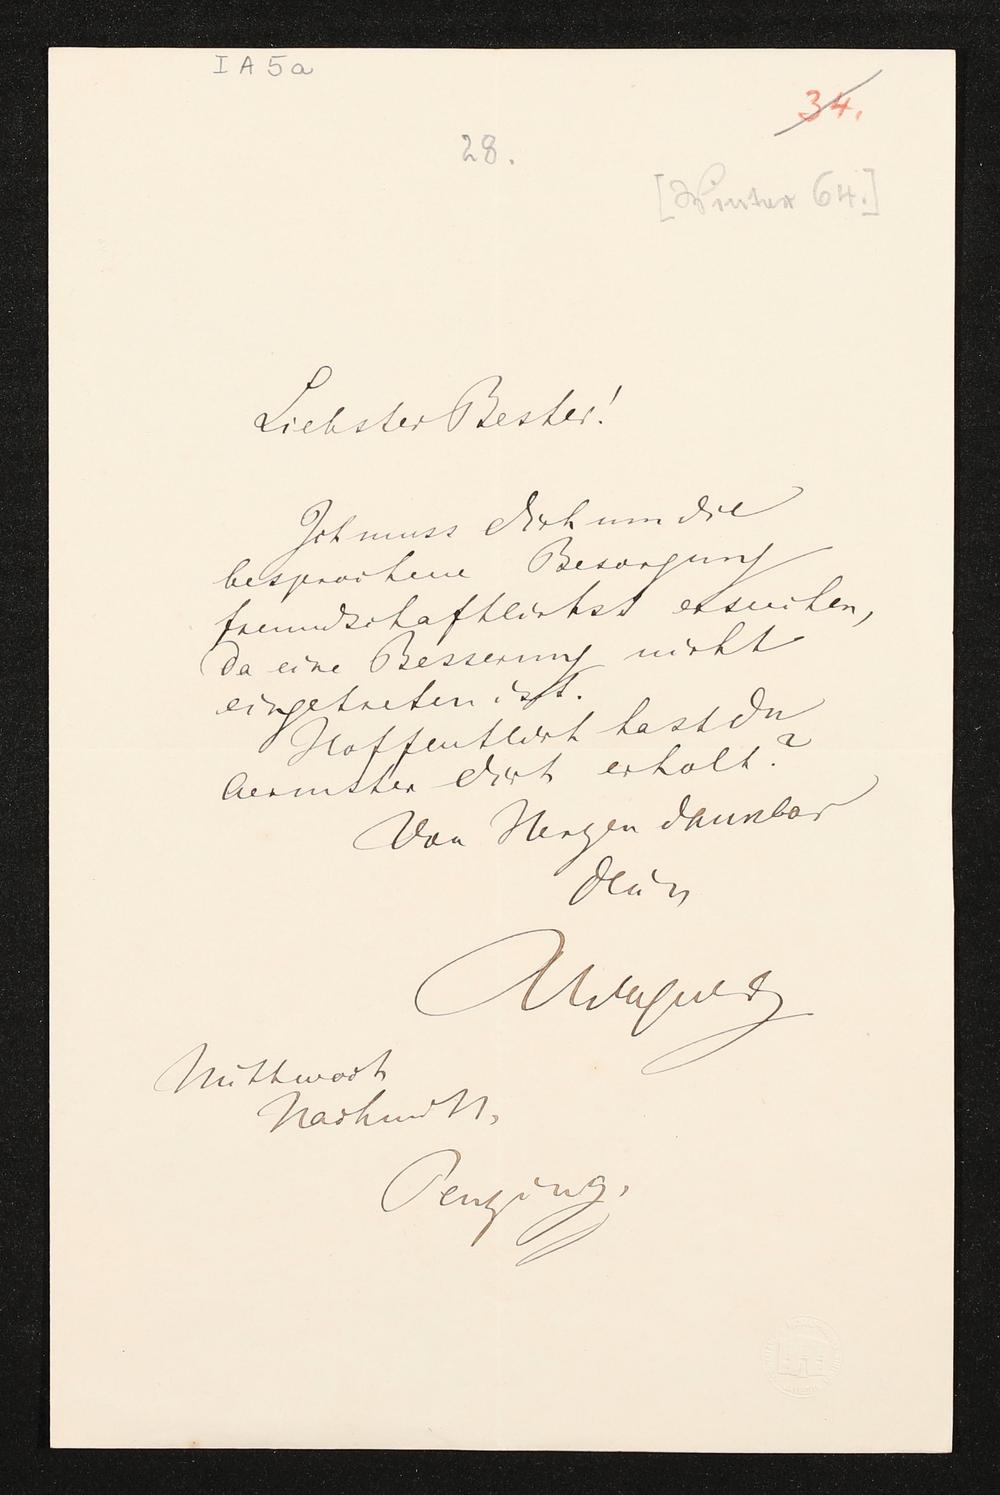 I A 5 a
34.
28.
[Winter 64.]
Liebster Bester!
Ich muss Dich um die
besprochene Besorgung
freundschaftlichst ersuchen,
da eine Besserung nicht
eingetreten ist.
Hoffentlich hast Du
Aermster Dich erholt?
Von Herzen dankbar
Dein
RWagner
Mittwoch
Nachmitt.
Penzing.